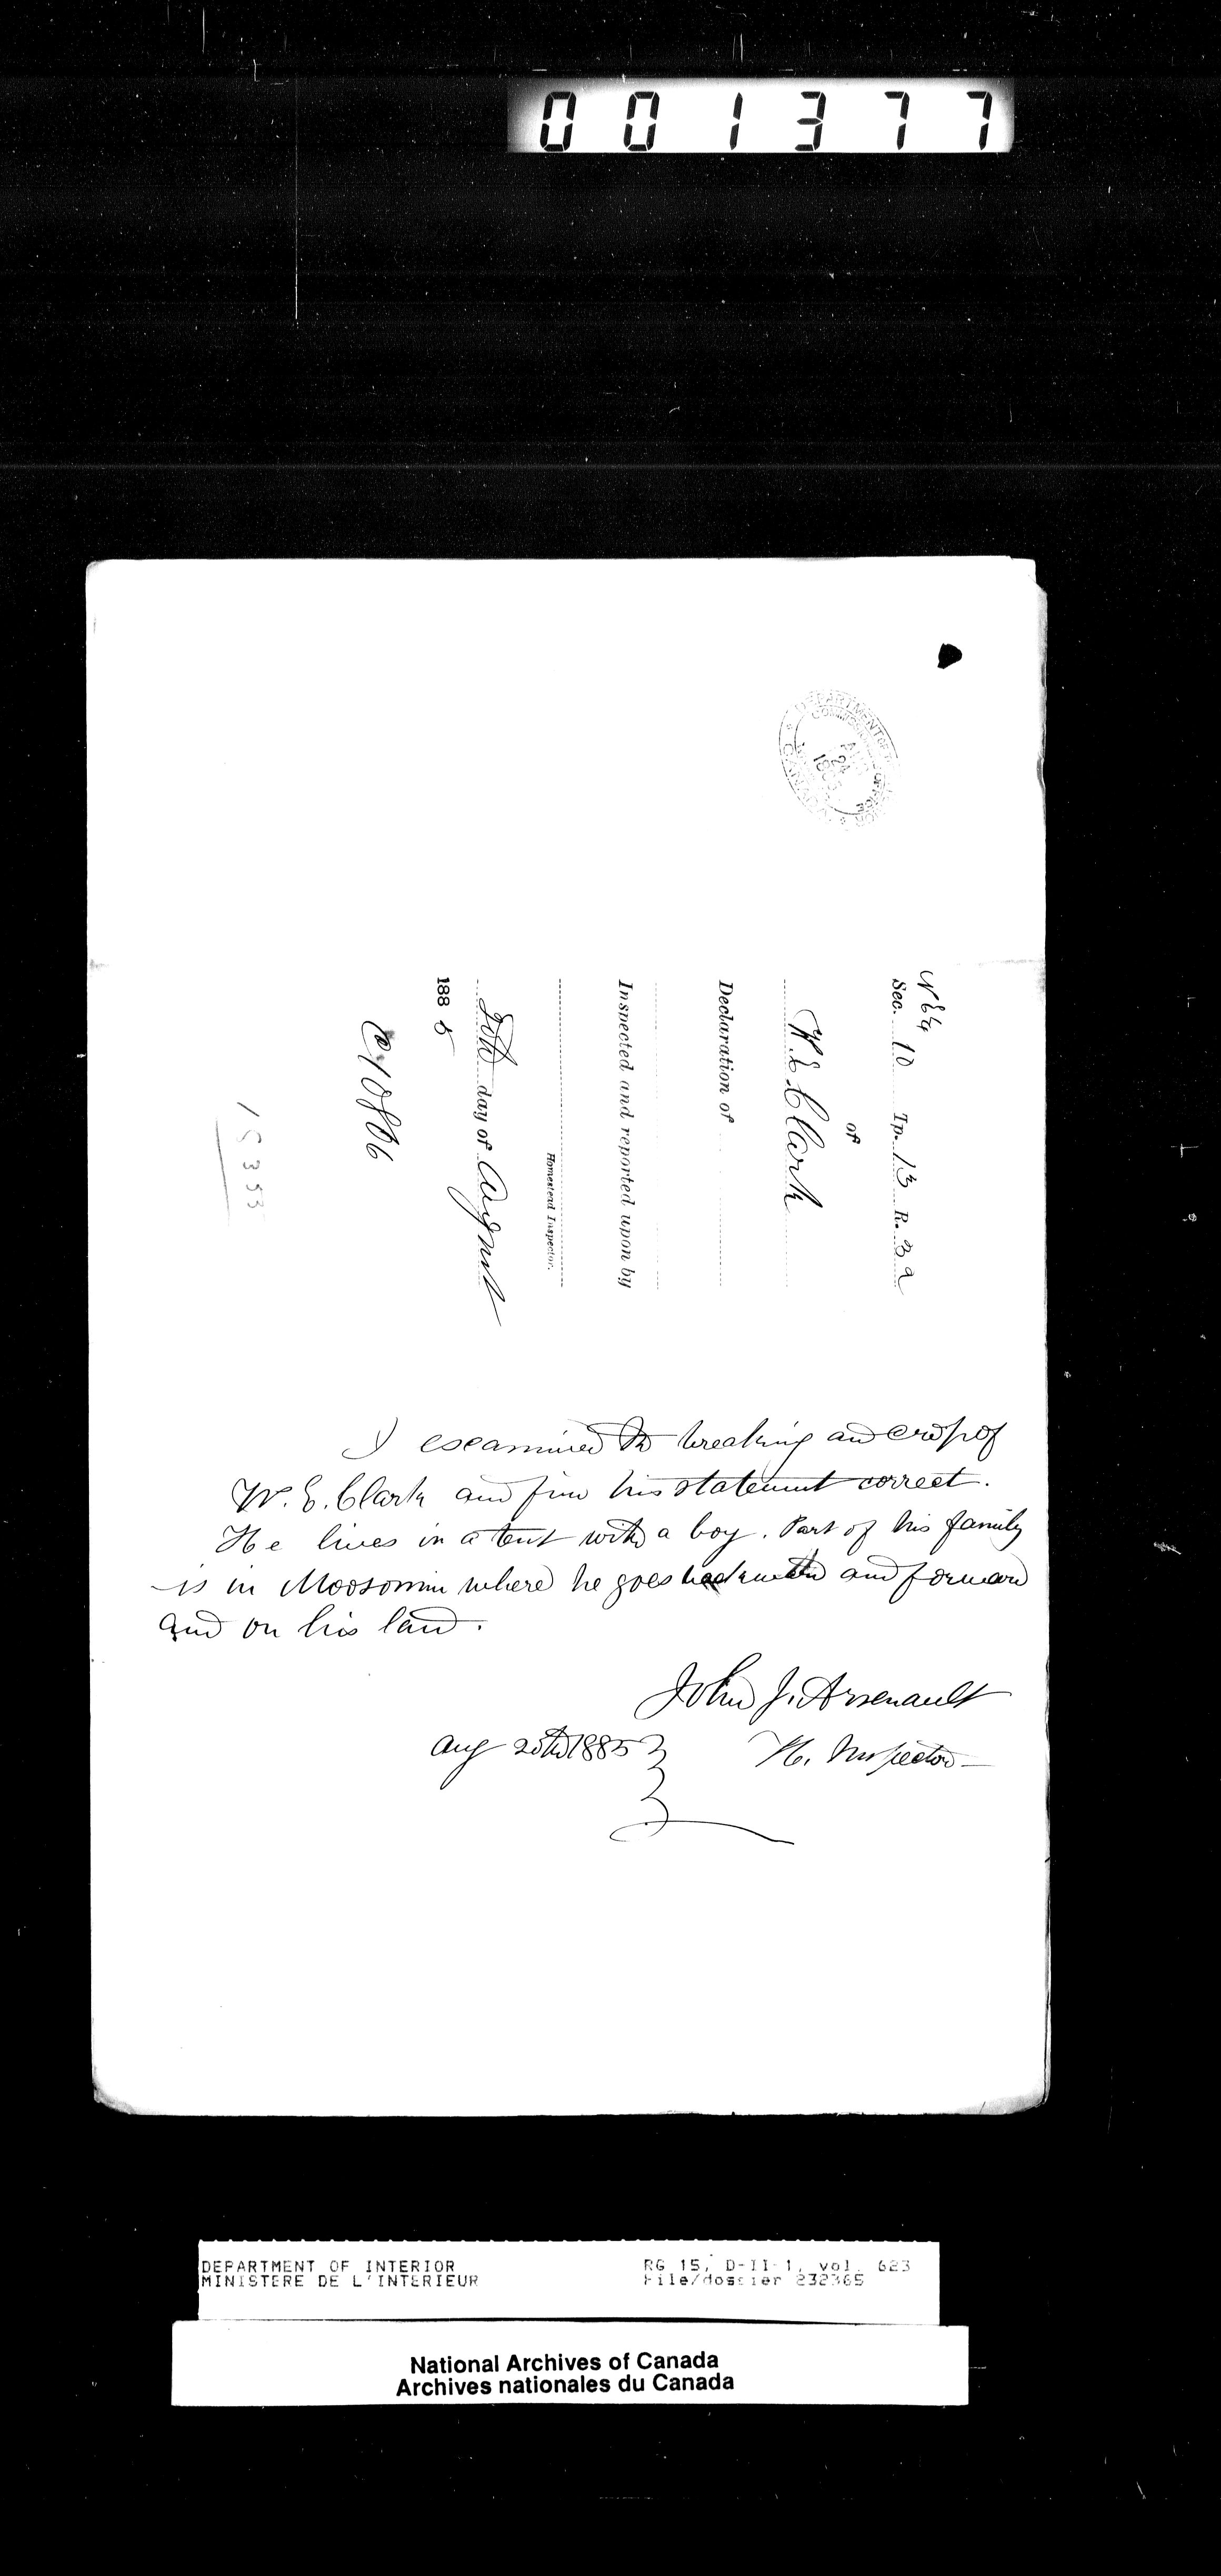 001377
DEPARTMENT OF
COMMISSIONER OFFICE
24
1885
N E ¼
Sec. 10 Tp. 13 R. 32
of
W. E. Clark
Declaration of
Inspected and reported upon by
Homestead Inspector.
20th day of August
1885
1353
I examined the breaking and crop of
W. E. Clark and find his statement correct.
He lives in a tent with a boy. Part of his family
is in Moosomin where he goes backward and forward
and on his land.
John J. Arsenault
Aug 20th 1885 H. Inspector
DEPARTMENT OF INTERIOR RG 15, D-II-1, vol. 623
MINISTERE DE L'INTERIEUR File/dossier 232365
National Archives of Canada
Archives nationales du Canada